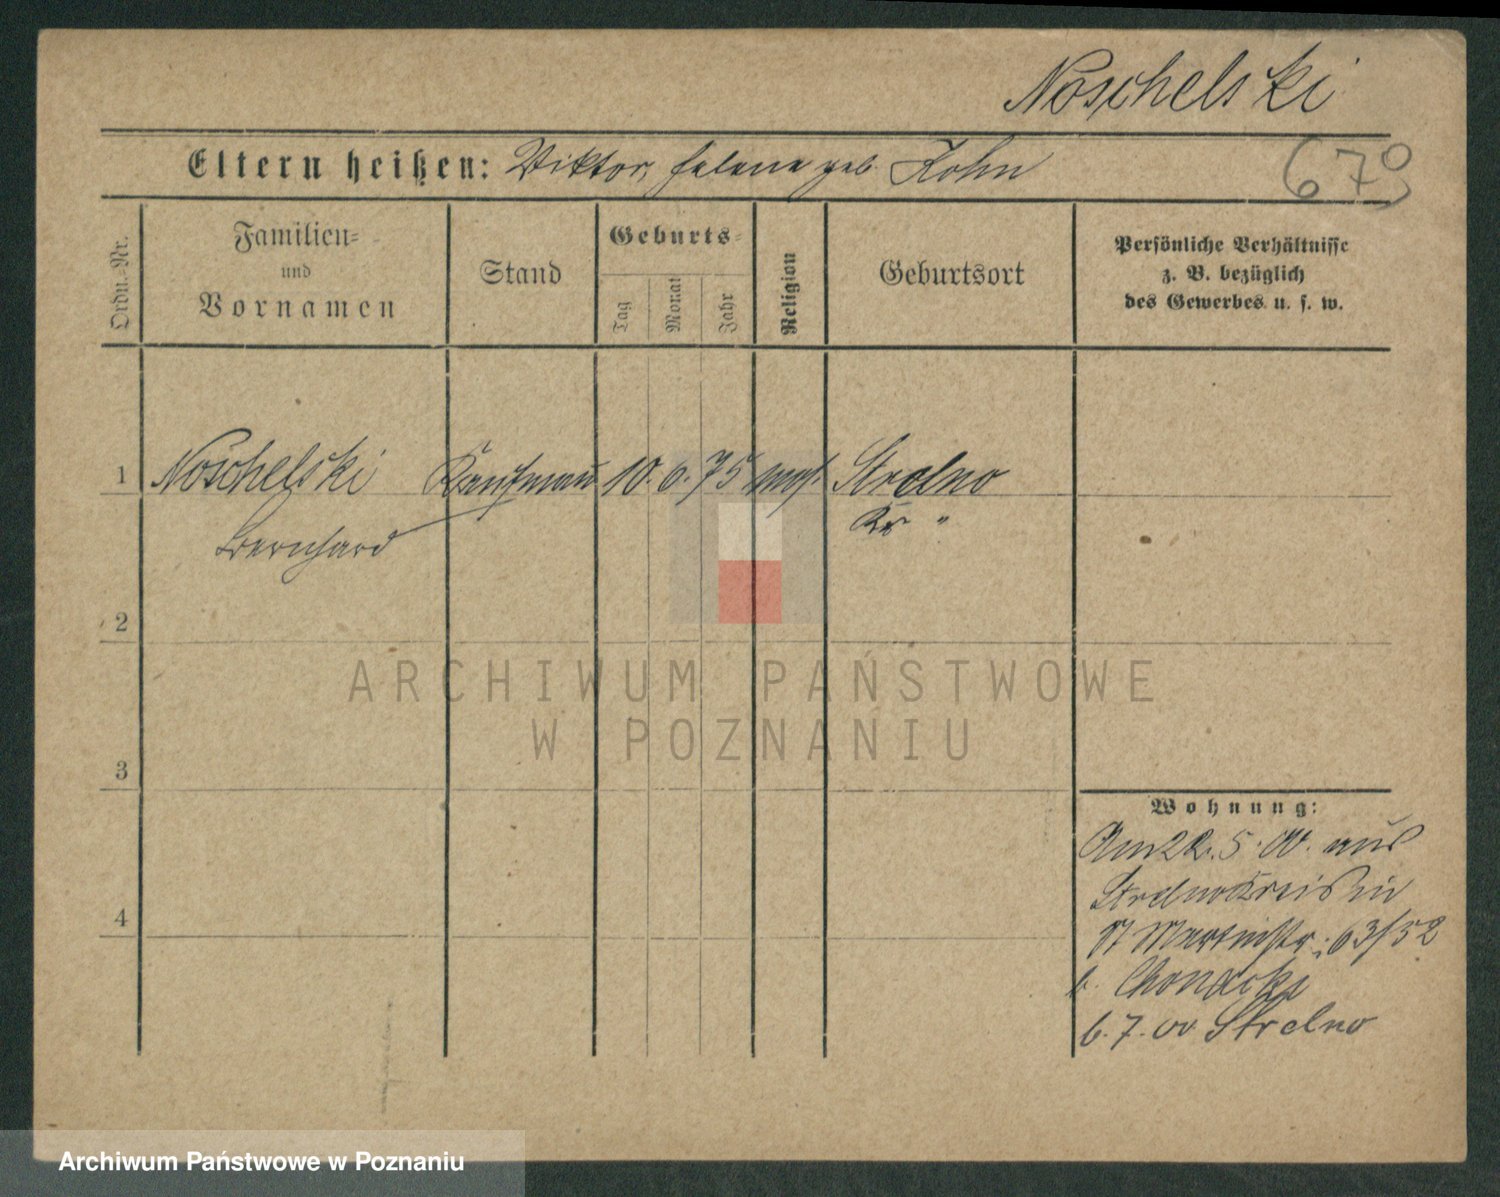 Noschelski
679
Eltern heißen: Viktor, Helene geb. Kohn
Ordn.-Nr.
Familien-
und
Vornamen
Stand
Geburts-
Tag
Monat
Jahr
Religion
Geburtsort
Persönliche Verhältnisse
z. B. bezüglich
des Gewerbes u. s. w.
1 Noschelski Kaufmann 10. 6. 75 mos. Strelno
Bernhard Kr "
2
ARCHIWUM PAŃSTWOWE
W POZNANIU
3
Wohnung:
Am 22. 5. 00. aus
Strelno Kreis in
4
St Martinstr. 63/52
b.
6. 7. 00 Strelno
Archiwum Państwowe w Poznaniu